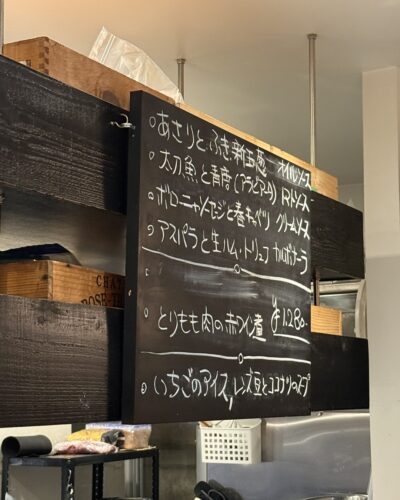 ○あさりと、ふき新玉葱 オイルソース
○太刀魚と青唐(アラビアータ) トマトソース
○ボローニャソーセージと春キャベツ クリームソース
○アスパラと生ハム・トリュフ カルボナーラ
○とりもも肉の赤ワイン煮 ¥1,280-
○いちごのアイス、レンズ豆とココナツのスープ
CHAT
ROSE-T